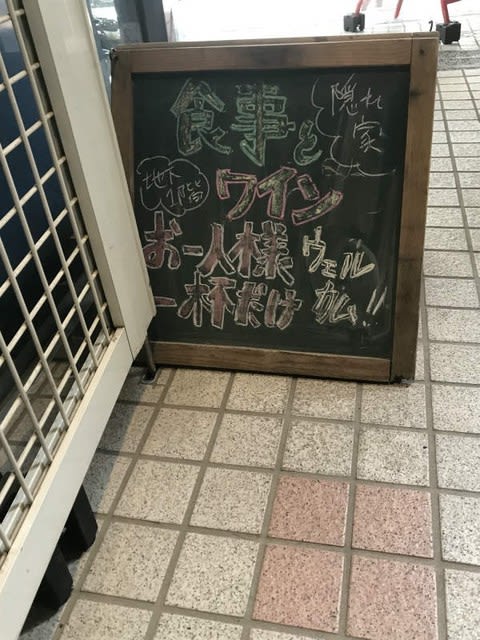 食事と
隠れ
家
地下
1階
ワイン
お一人様
一杯だけ
ウェル
カム!!